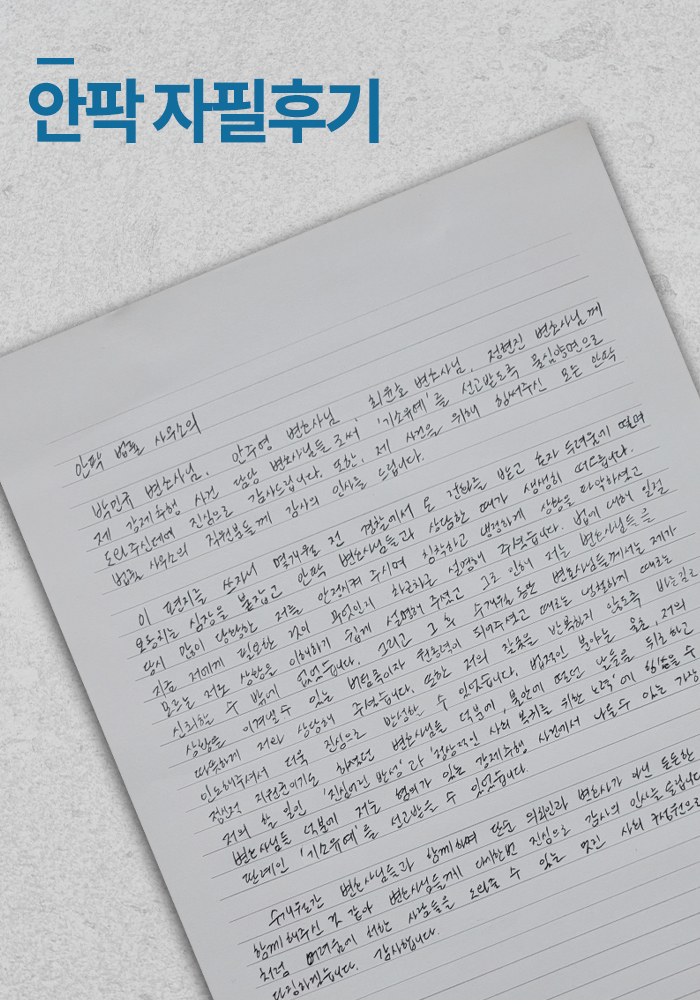 안팍 자필후기
안팍 법률 사무소의
박민규 변호사님, 안주영 변호사님, 최윤호 변호사님, 정현진 변호사님께
제 강제추행 사건 담당 변호사님들로써 '기소유예'를 선고받도록 물심양면으로
도와주신데에 진심으로 감사드립니다. 또한, 제 사건을 위해 힘써주신 모든 안팍
법률 사무소의 직원분들께 감사의 인사를 드립니다.
이 편지를 쓰자니 몇개월 전 경찰에서 온 전화를 받고 혼자 두려움에 떨며
요동치는 심장을 붙잡고 안팍 변호사님들과 상담한 때가 생생히 떠오릅니다.
당시 많이 당황한 저를 안정시켜 주시며 침착하고 냉정하게 상황을 파악하셨고
지금 저에게 필요한 것이 무엇인지 차근차근 설명해 주셨습니다. 법에 대해 일절
모르는 저로 상황을 이해하기 쉽게 설명해 주셨고 그로 인해 저는 변호사님들을
신뢰할 수 밖에 없었습니다. 그리고 그 후 수개월 동안 변호사님들께서는 제가
상황을 이겨낼 수 있는 버팀목이자 원동력이 되어주셨고 때로는 냉철하게 때로는
따뜻하게 저와 상담해 주셨습니다. 또한 저의 잘못을 반복하지 않도록 바른길로
인도해주셔서 더욱 진심으로 반성할 수 있었습니다. 법적인 분야는 물론, 저의
정신적 지원군이기도 하셨던 변호사님들 덕분에, 불안에 떨던 날들을 뒤로하고
저의 할 일인 '진심어린 반성'과 '정상적인 사회 복귀를 위한 노력'에 힘쓸 수
변호사님들 덕분에 저는 혐의가 있는 강제추행 사건에서 나올 수 있는 가장
판례인 '기소유예'를 선고받을 수 있었습니다.
수개월간 변호사님들과 함께하며 단순 의뢰인과 변호사가 아닌 든든한
함께 해주신 것 같아 변호사님들께 다시한번 진심으로 감사의 인사를 드립니다
처럼 어려움에 처한 사람들을 도와줄 수 있는 멋진 사회 구성원으로
다짐하겠습니다. 감사합니다.